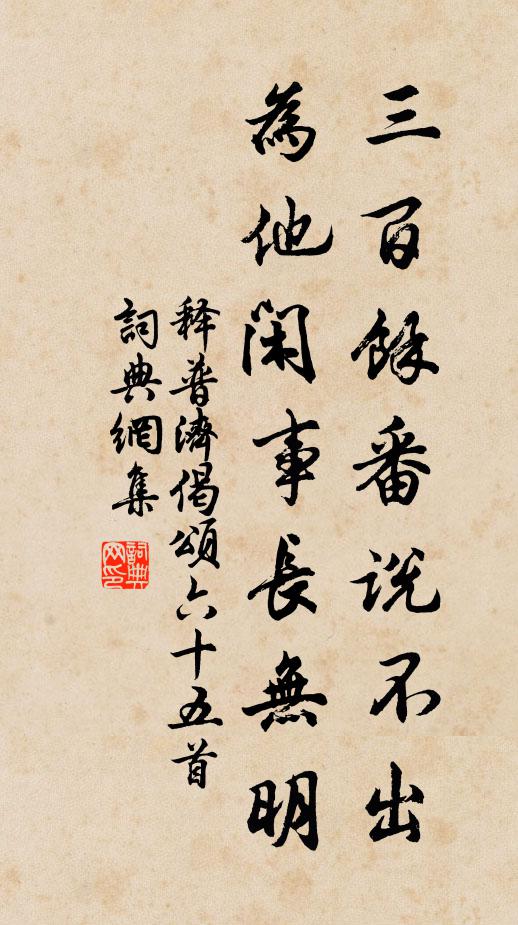 三百餘番說不出
為他閑事長無明
释普濟偈頌六十五首
詞典網集
詞典網印